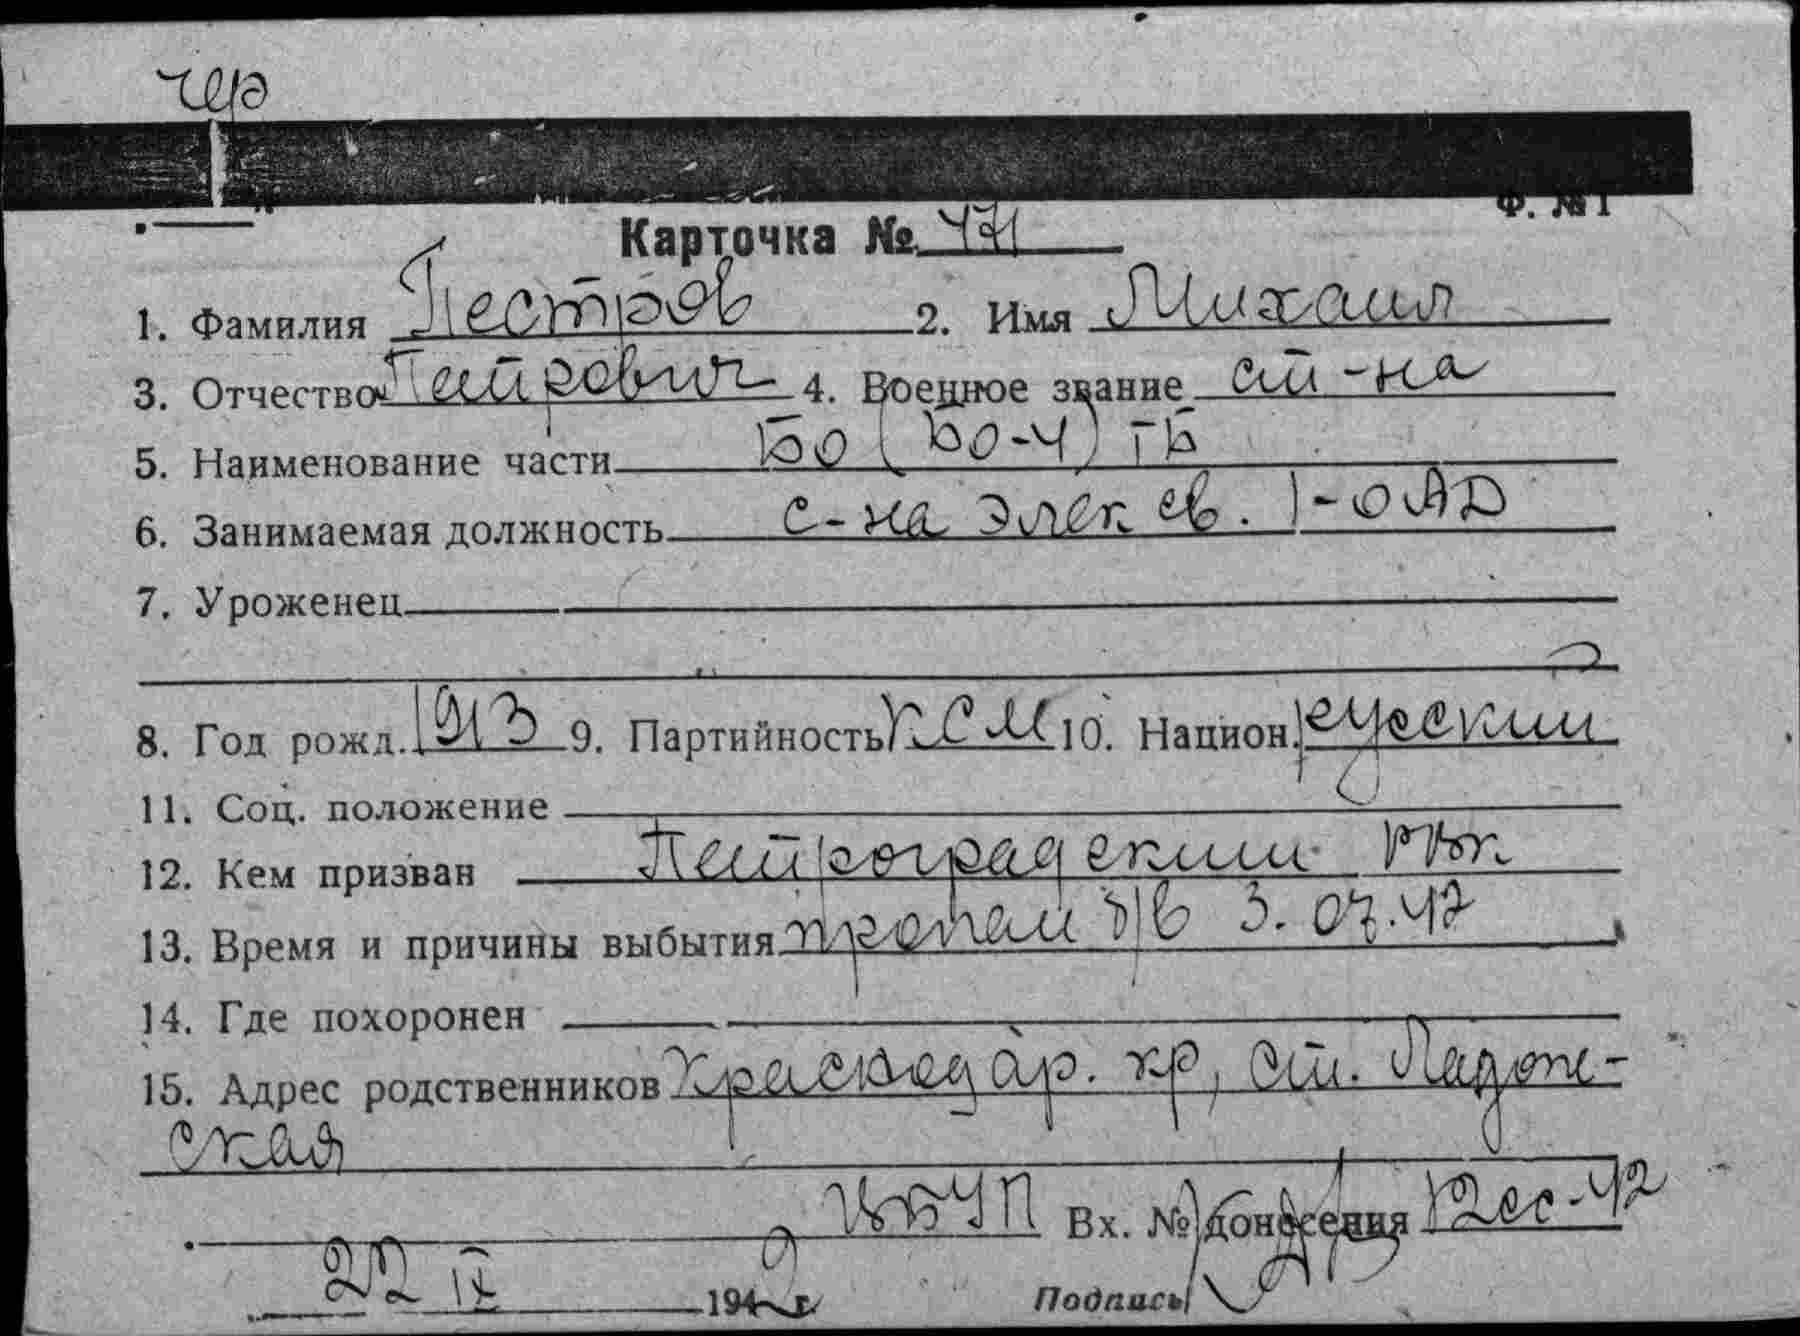 чер
Ф. № 1
Карточка № 471
1. Фамилия Пестров 2. Имя Михаил
3. Отчество Петрович 4. Военное звание ст-на
5. Наименование части БО (БО-4) ТБ
6. Занимаемая должность с-на элек св. 1-ОАД
7. Уроженец
8. Год рожд. 1913 9. Партийность КСМ 10. Национ. русский
11. Соц. положение
12. Кем призван Петроградский РВК
13. Время и причины выбытия пропал б/в 3.07.42
14. Где похоронен
15. Адрес родственников Краснодар. кр, ст. Ладож-
ская
Вх. № донесения 12сс-42
22 IX 1942 г. Подпись